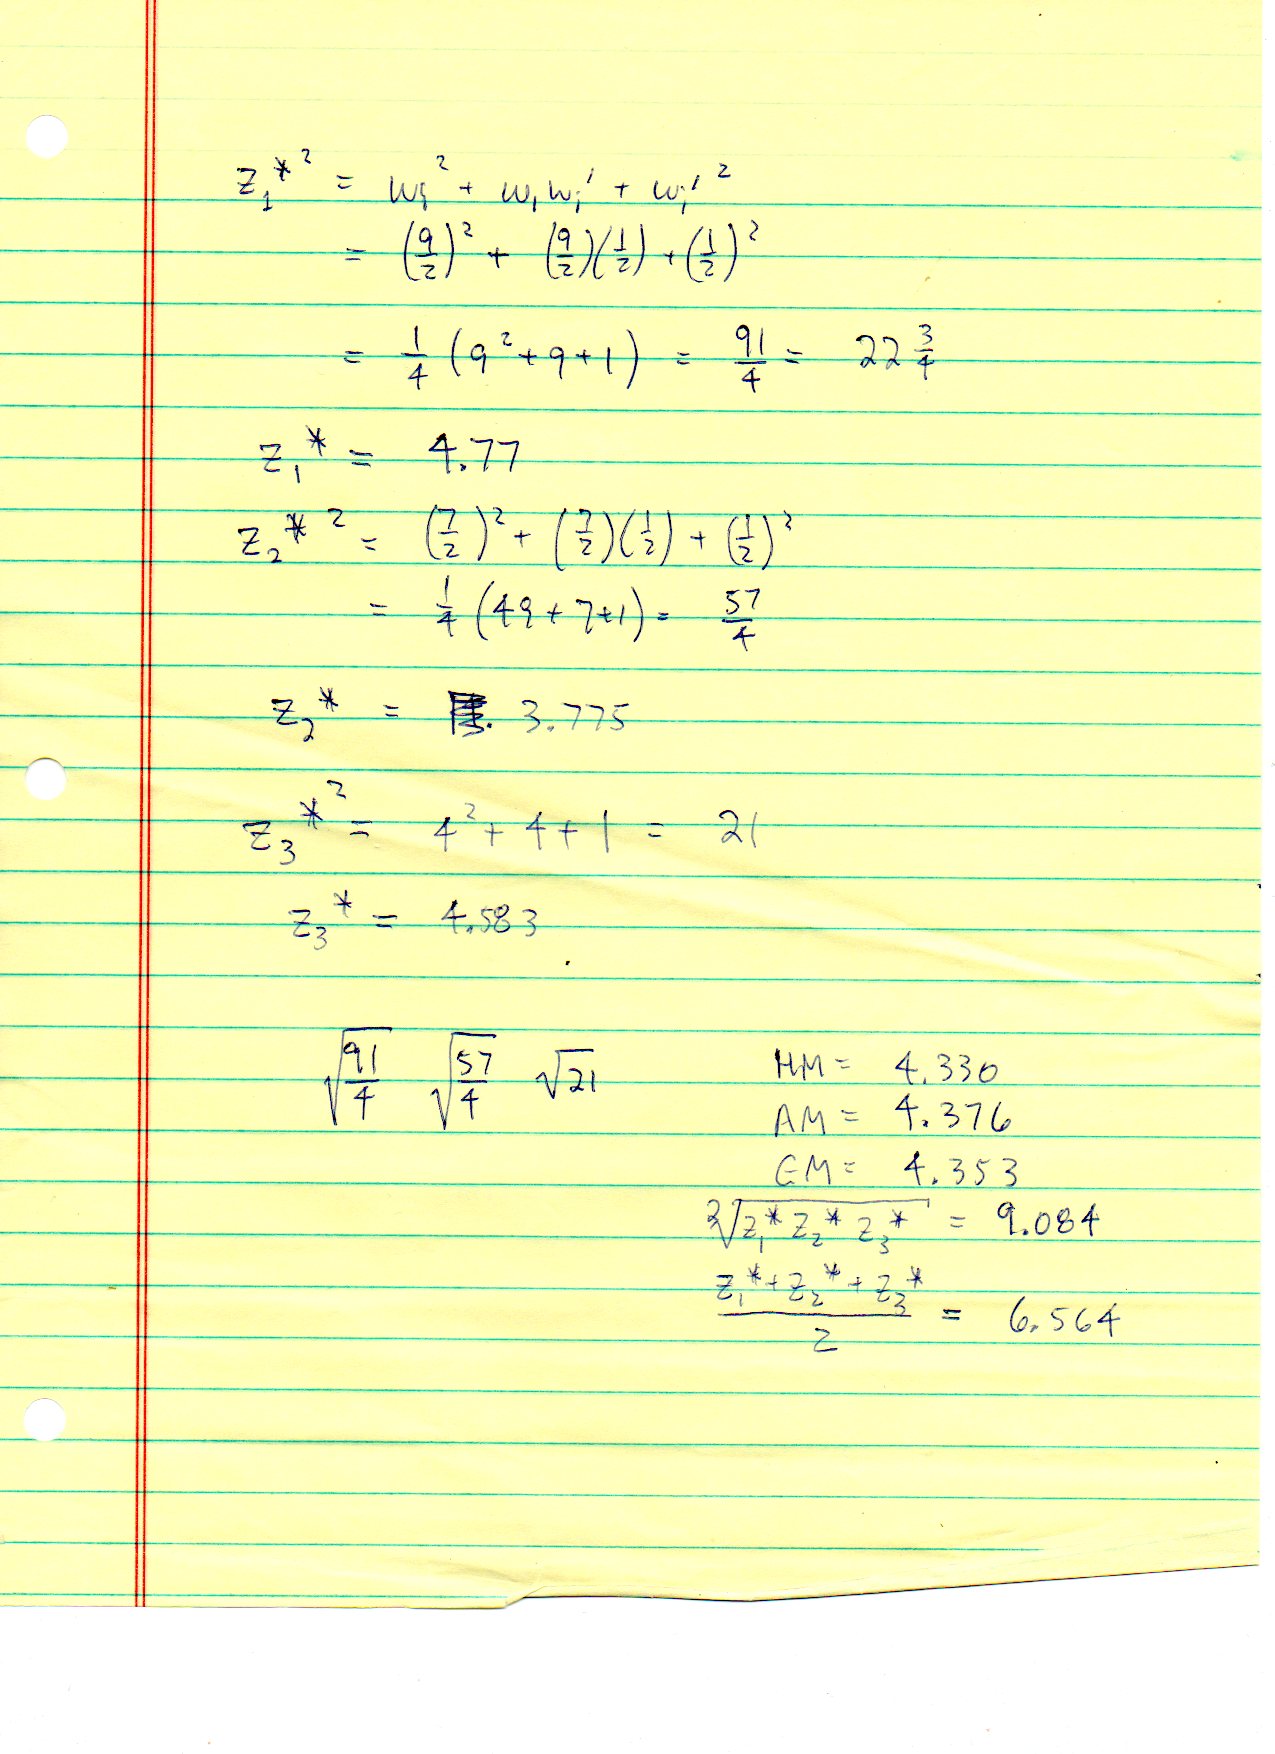 z₁*² = w₁² + w₁w₁' + w₁'²
= (9/2)² + (9/2)(1/2) + (1/2)²
= 1/4 (9² + 9 + 1) = 91/4 = 22 3/4
z₁* = 4.77
z₂*² = (7/2)² + (7/2)(1/2) + (1/2)²
= 1/4 (49 + 7 + 1) = 57/4
z₂* = 3.775
z₃*² = 4² + 4 + 1 = 21
z₃* = 4.583
√(91/4) √(57/4) √21
HM = 4.330
AM = 4.376
GM = 4.353
²√(z₁* z₂* z₃*) = 9.084
(z₁* + z₂* + z₃*)/2 = 6.564